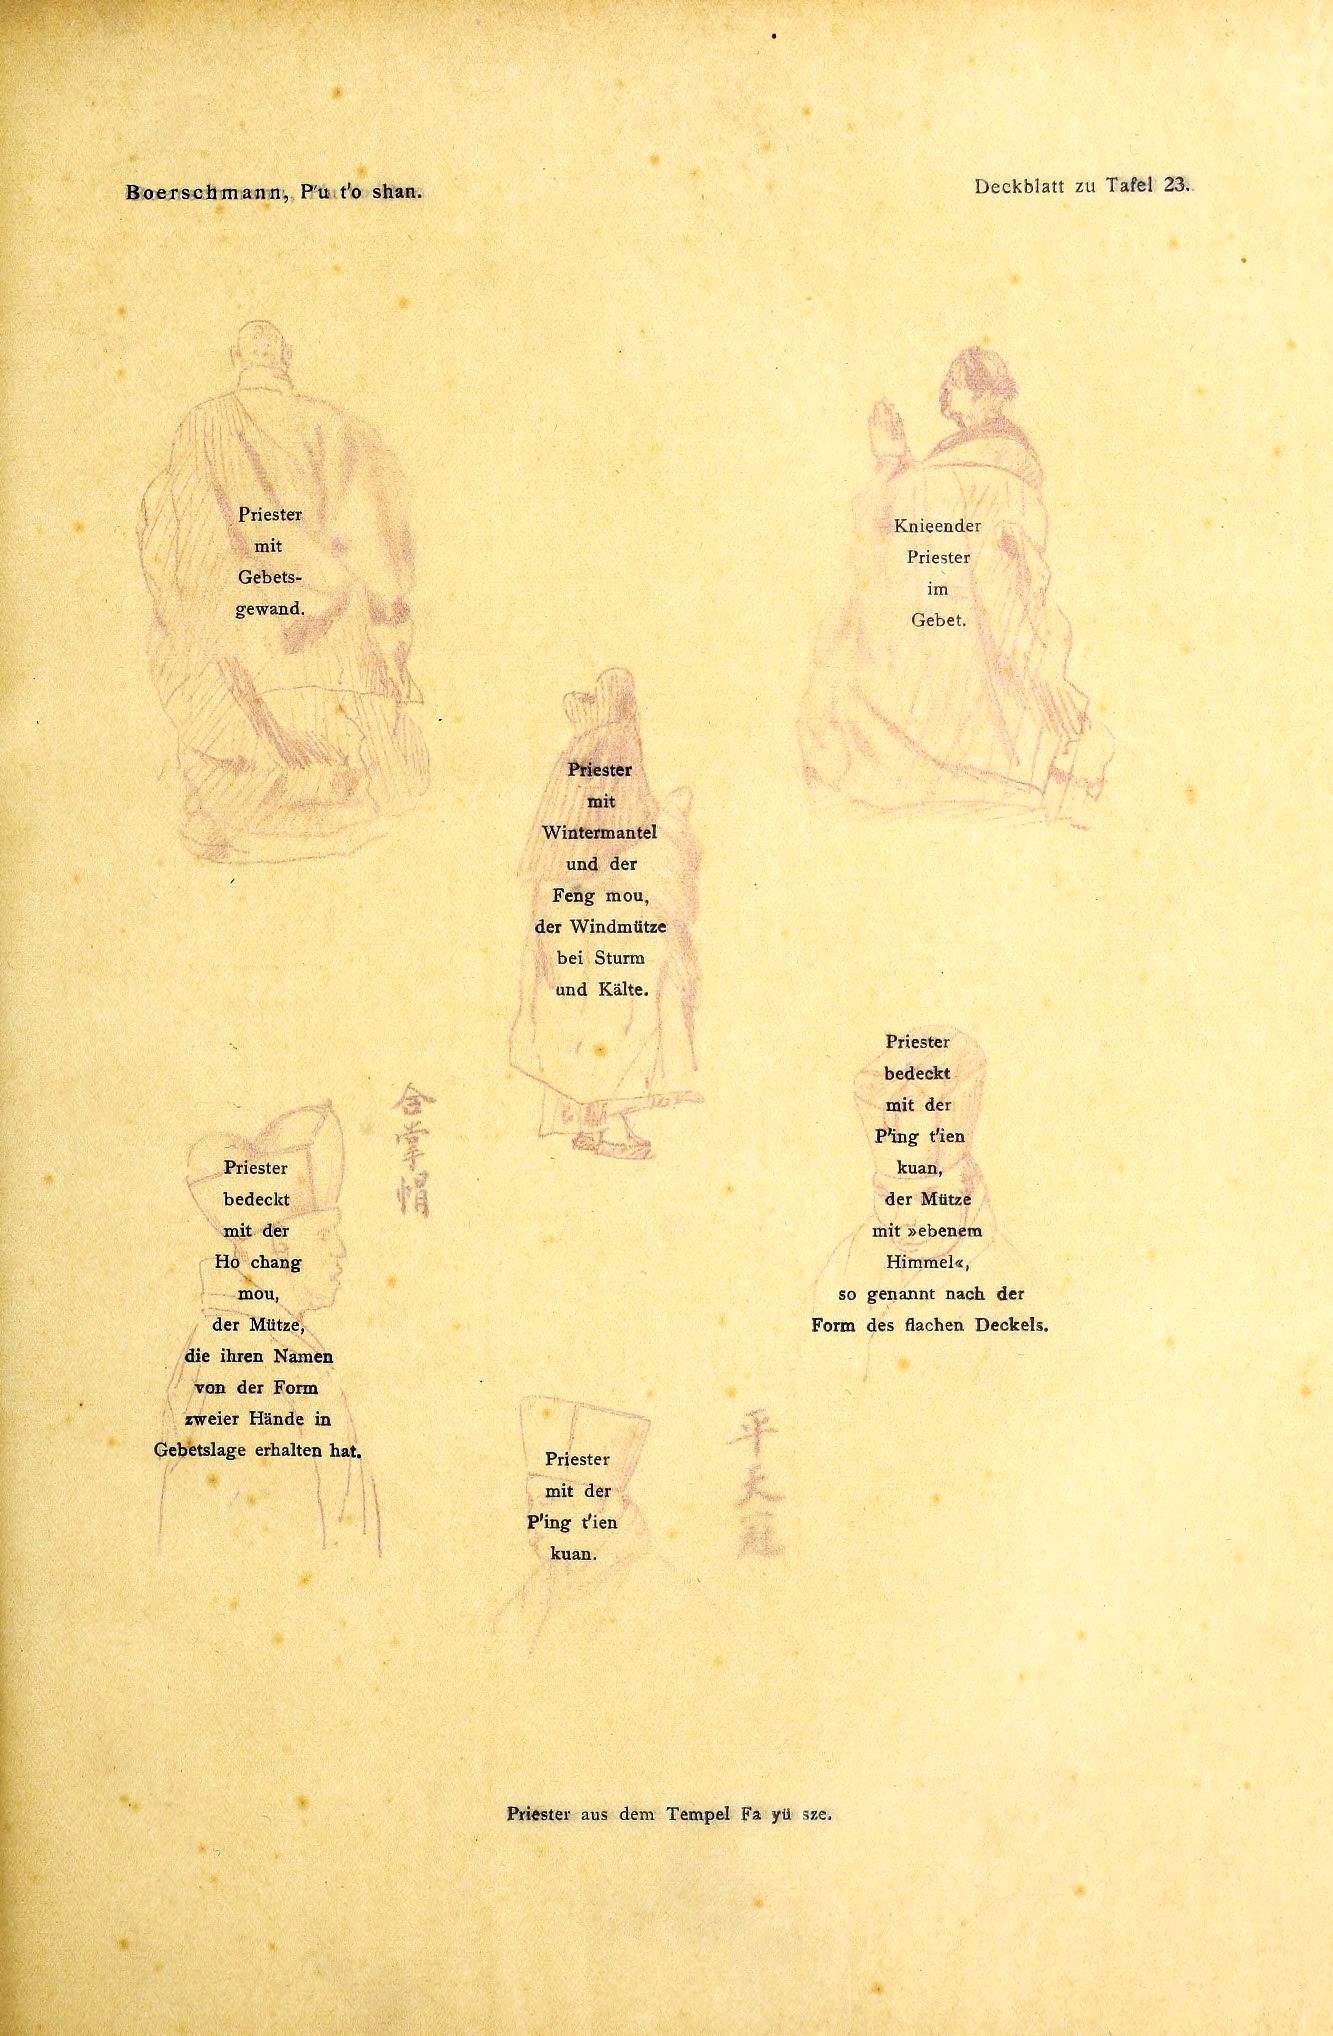 Boerschmann, P'u t'o shan.
Deckblatt zu Tafel 23.
Priester
mit
Gebets-
gewand.
Knieender
Priester
im
Gebet.
Priester
mit
Wintermantel
und der
Feng mou,
der Windmütze
bei Sturm
und Kälte.
Priester
bedeckt
mit der
P'ing t'ien
kuan,
der Mütze
mit »ebenem
Himmel«,
so genannt nach der
Form des flachen Deckels.
Priester
bedeckt
mit der
Ho chang
mou,
der Mütze,
die ihren Namen
von der Form
zweier Hände in
Gebetslage erhalten hat.
合掌帽
Priester
mit der
P'ing t'ien
kuan.
平天冠
Priester aus dem Tempel Fa yü sze.